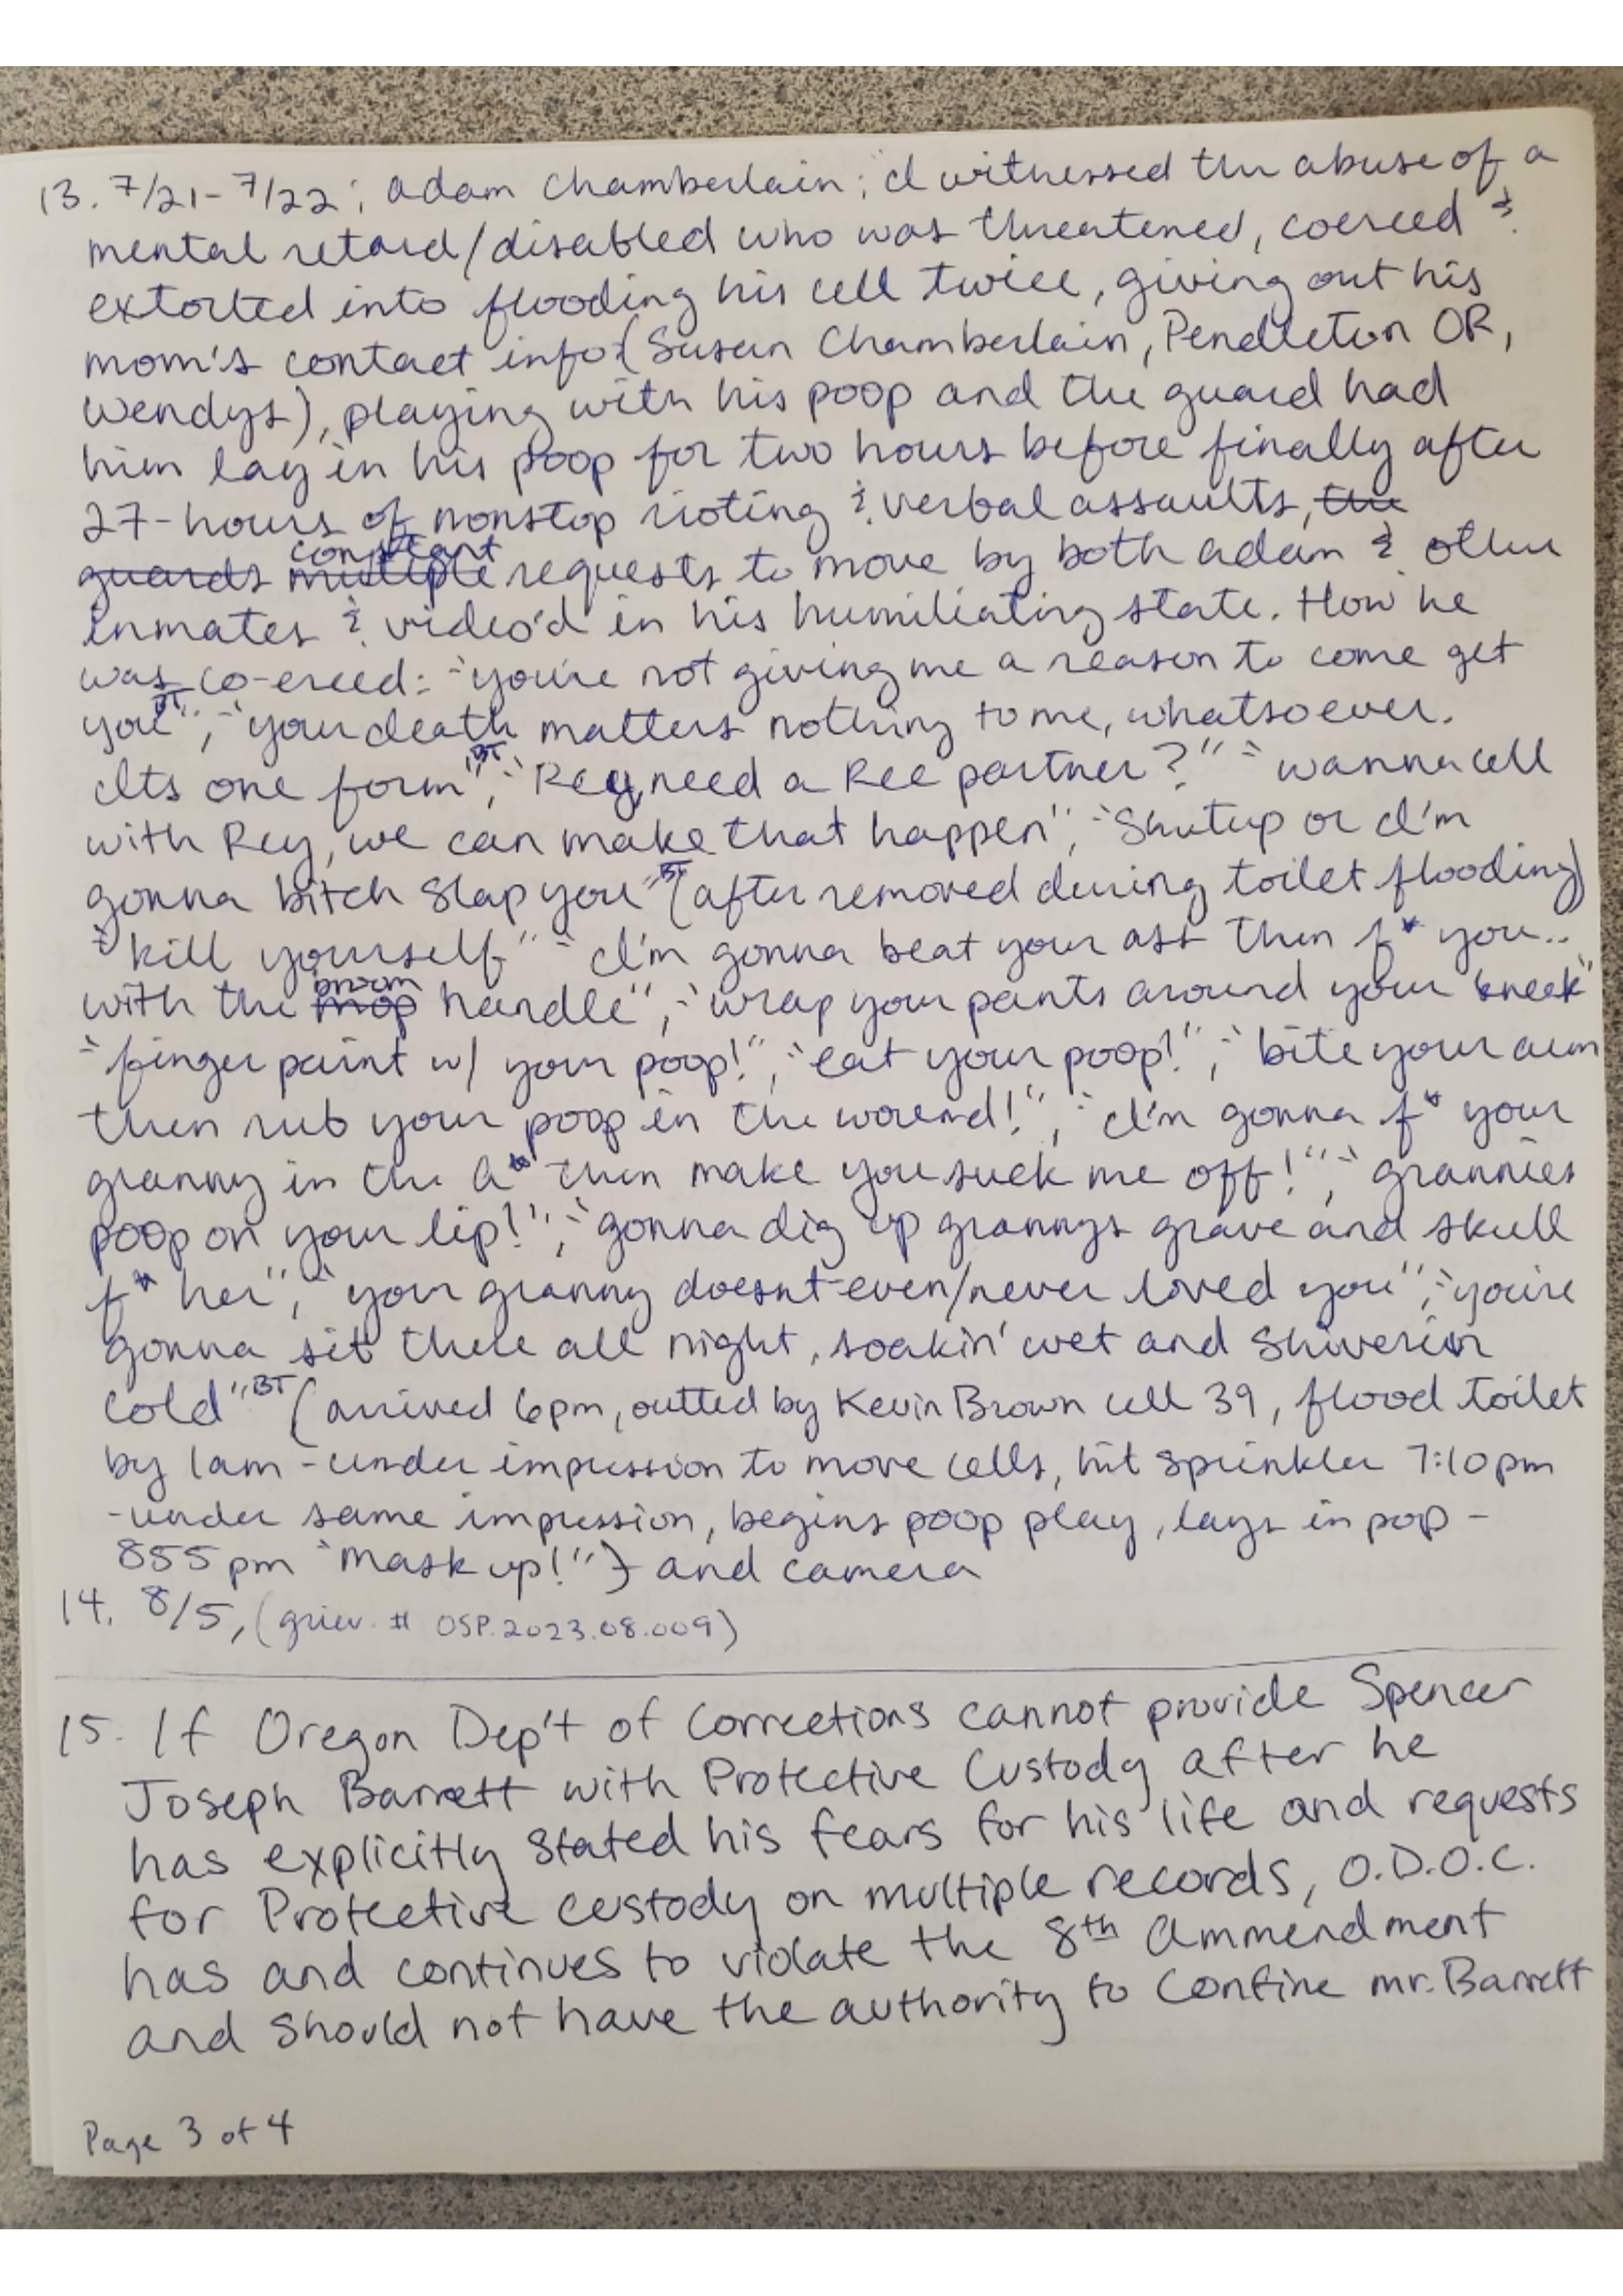 13. 7/21-7/22; Adam Chamberlain; I witnessed the abuse of a
mental retard/disabled who was threatened, coerced &
extorted into flooding his cell twice, giving out his
mom's contact info (Susan Chamberlain, Pendleton OR,
Wendys), playing with his poop and the guard had
him lay in his poop for two hours before finally after
27-hours of nonstop rioting & verbal assaults, the
guards multiple constant requests to move by both adam & other
inmates & video'd in his humiliating state. How he
was co-erced: "you're not giving me a reason to come get
you" BT, "your death matters nothing to me, whatsoever.
Its one form" BT, "Rey, need a Rec partner?" "wanna cell
with Rey, we can make that happen", "Shutup or I'm
gonna bitch slap you" BT (after removed during toilet flooding)
"kill yourself" "I'm gonna beat your ass then f* you..
with the mop broom handle", "wrap your pants around your kneck"
"finger paint w/ your poop!", "eat your poop!", "bite your arm
then rub your poop in the wound!", "I'm gonna f* your
granny in the A* then make you suck me off!", "grannies
poop on your lip!", "gonna dig up grannys grave and skull
f* her", "your granny doesnt even/never loved you", "you're
gonna sit there all night, soakin' wet and shiverin
cold" BT (arrived 6pm, outted by Kevin Brown cell 39, flood toilet
by 1am - under impression to move cells, hit sprinkler 7:10pm
- under same impression, begins poop play, lays in pop -
855pm "mask up!") and camera
14. 8/5, (griev. # OSP.2023.08.009)
15. If Oregon Dep't of Corrections cannot provide Spencer
Joseph Barrett with Protective Custody after he
has explicitly stated his fears for his life and requests
for Protective custody on multiple records, O.D.O.C.
has and continues to violate the 8th Ammendment
and should not have the authority to confine mr. Barrett
Page 3 of 4